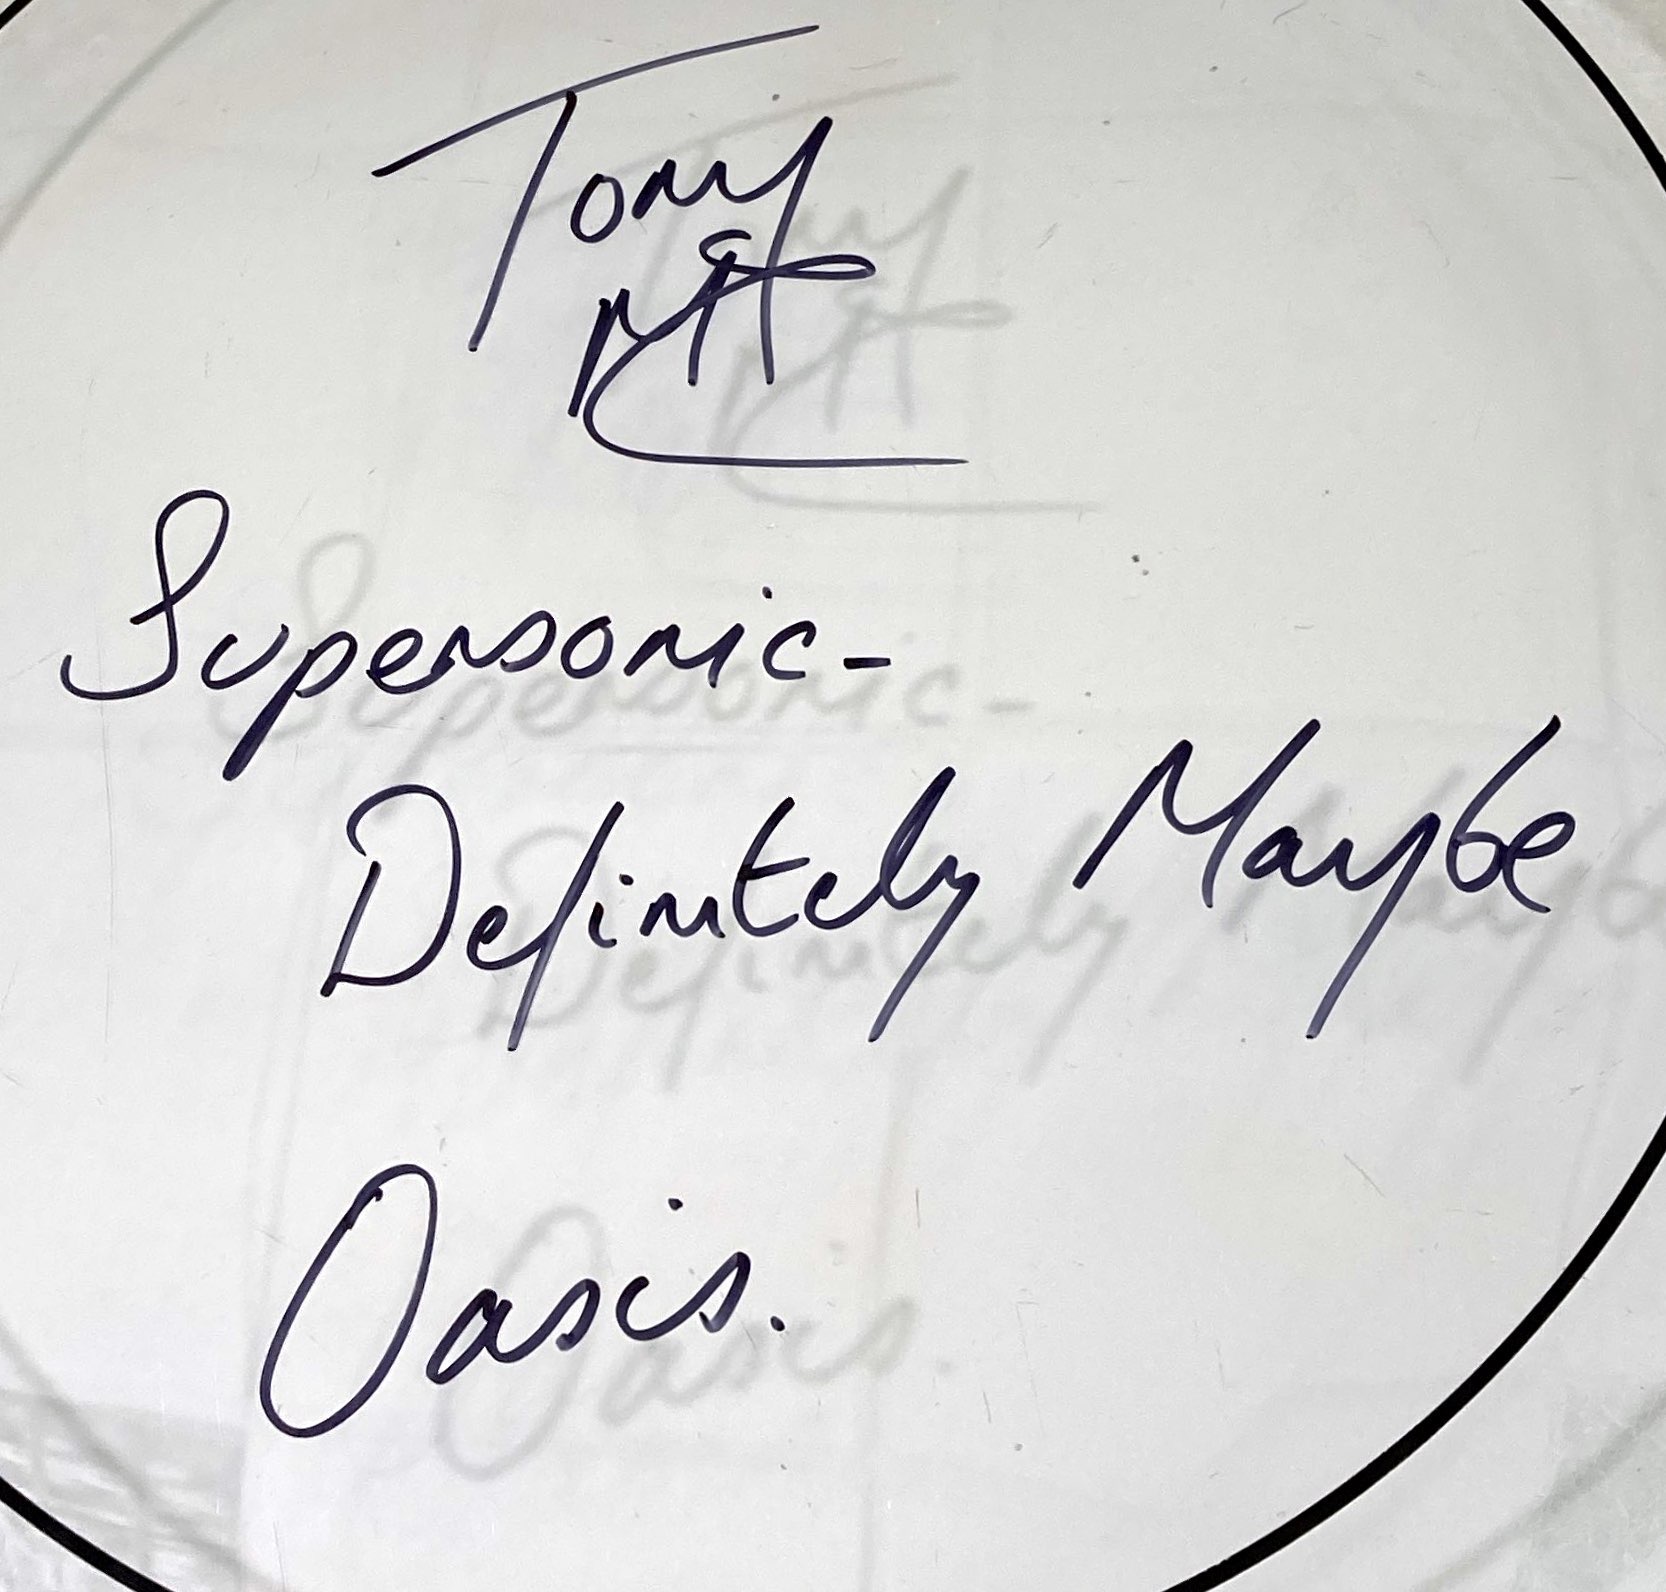 Tony
Supersonic-
Definitely Maybe
Oasis.